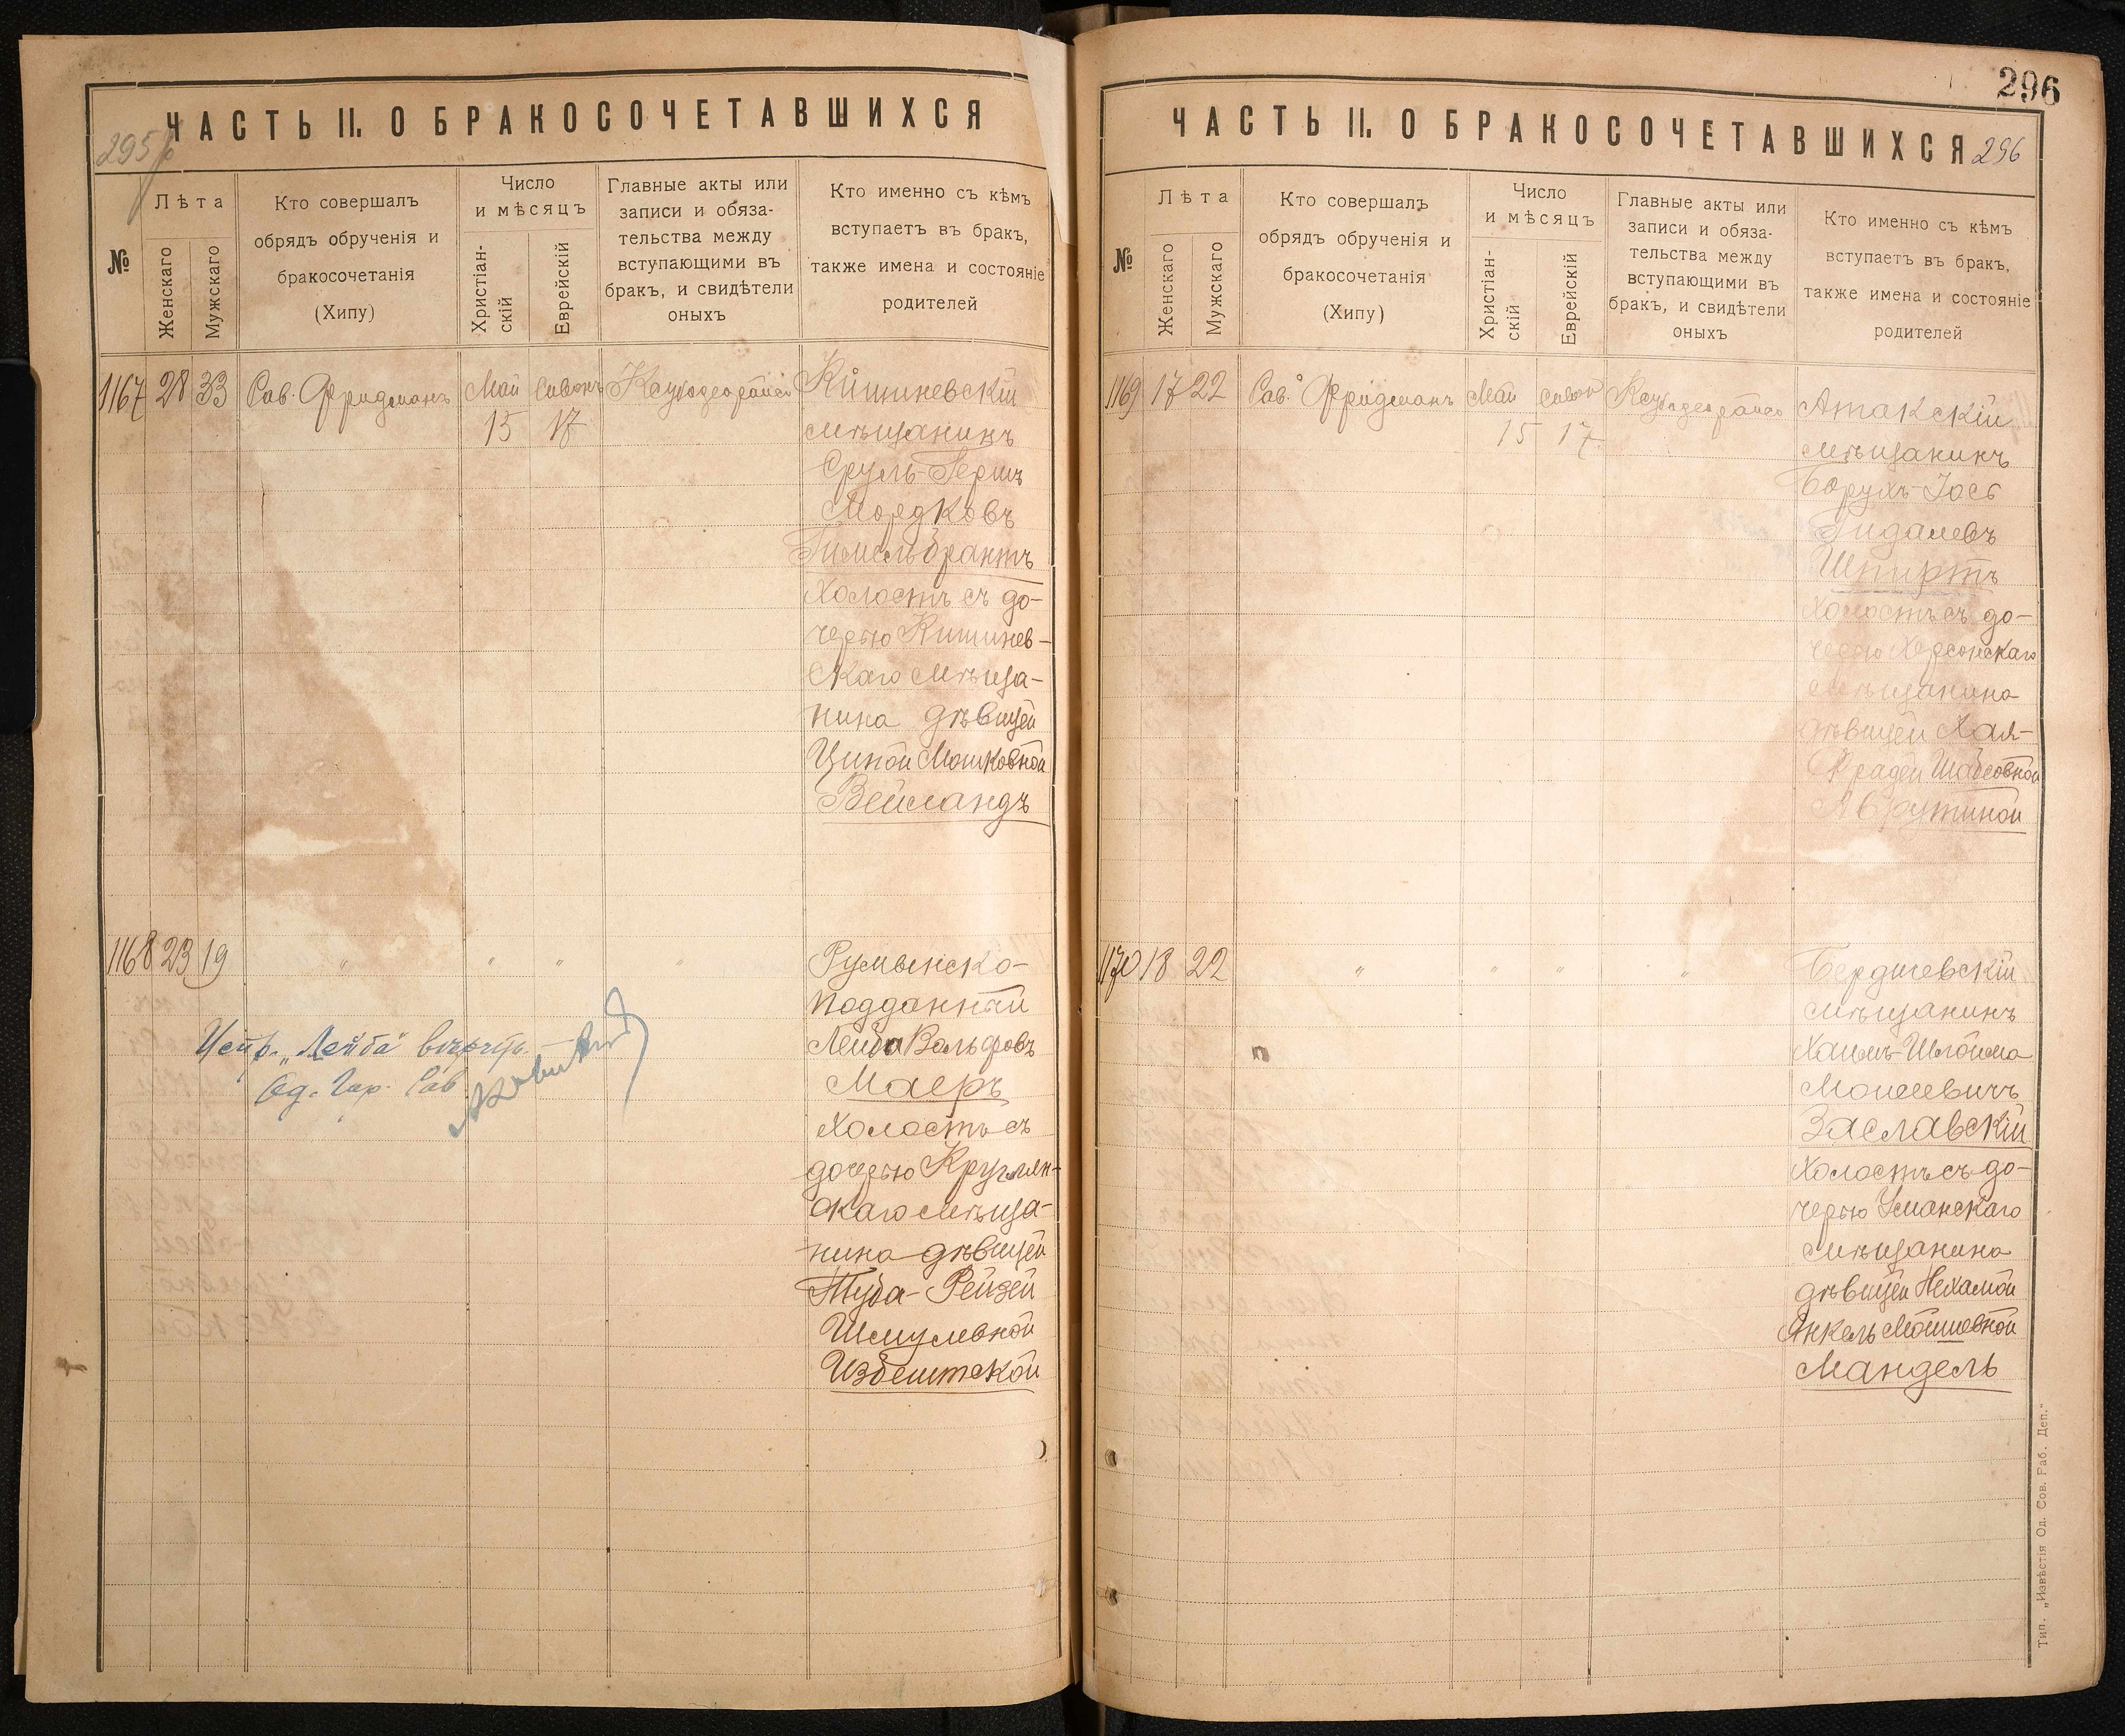 295
ЧАСТЬ II. О БРАКОСОЧЕТАВШИХСЯ
№
Лѣта
Женскаго
Мужскаго
Кто совершалъ
обрядъ обрученія и
бракосочетанія
(Хипу)
Число
и мѣсяцъ
Христіан-
скій
Еврейскій
Главные акты или
записи и обяза-
тельства между
вступающими въ
бракъ, и свидѣтели
оныхъ
Кто именно съ кѣмъ
вступаетъ въ бракъ,
также имена и состояніе
родителей
1167 28 33 Рав. Фридманъ Май Сивонъ
15 17
Кишиневскій
мѣщанинъ
Сруль-Герш
Мордковъ
Гимельбрантъ
Холостъ съ до-
черью Кишинев-
скаго мѣща-
нина дѣвицей
Циной Мошковной
Вейсландъ
1168 23 19 " " " "
Румынско-
подданный
Лейба Вольфовъ
Маеръ
Холостъ съ
дочерью Круглян-
скаго мѣща-
нина дѣвицей
Туба-Рейзей
Шмулевной
Избештской
"Лейба" вѣрить.
Од. Гор. Рав.
296
ЧАСТЬ II. О БРАКОСОЧЕТАВШИХСЯ
296
№
Лѣта
Женскаго
Мужскаго
Кто совершалъ
обрядъ обрученія и
бракосочетанія
(Хипу)
Число
и мѣсяцъ
Христіан-
скій
Еврейскій
Главные акты или
записи и обяза-
тельства между
вступающими въ
бракъ, и свидѣтели
оныхъ
Кто именно съ кѣмъ
вступаетъ въ бракъ,
также имена и состояніе
родителей
1169 17 22 Рав. Фридманъ Май Сивон
15 17
Атакскій
мѣщанинъ
Борухъ-Іось
Гидалевъ
Шпиртъ
Холостъ съ до-
черью Херсонскаго
мѣщанина
дѣвицей Хая-
Фрадей Шабсовной
Аврутиной
1170 18 22 " " " "
Бердичевскій
мѣщанинъ
Хаимъ-Шлойма
Моисеевичъ
Заславскій
Холостъ съ до-
черью Уманскаго
мѣщанина
дѣвицей Нехамой
Янкель Мошковной
Мандель
Тип. „Извѣстія Од. Сов. Раб. Деп."